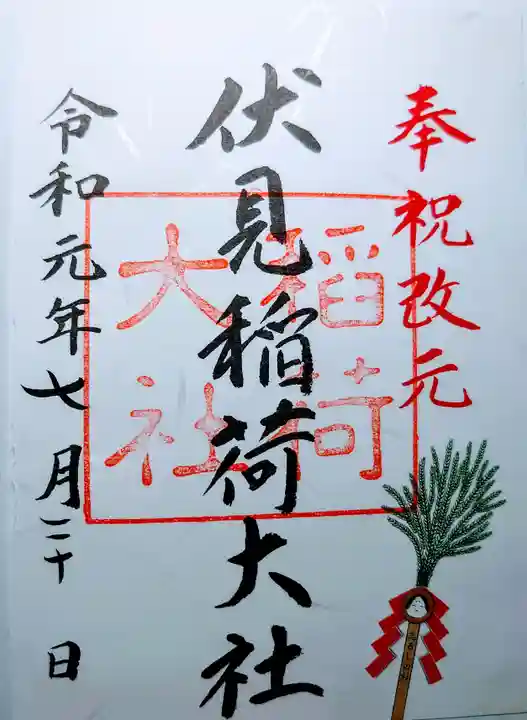 奉祝改元
伏見稲荷大社
稲荷
大社
令和元年七月二十日